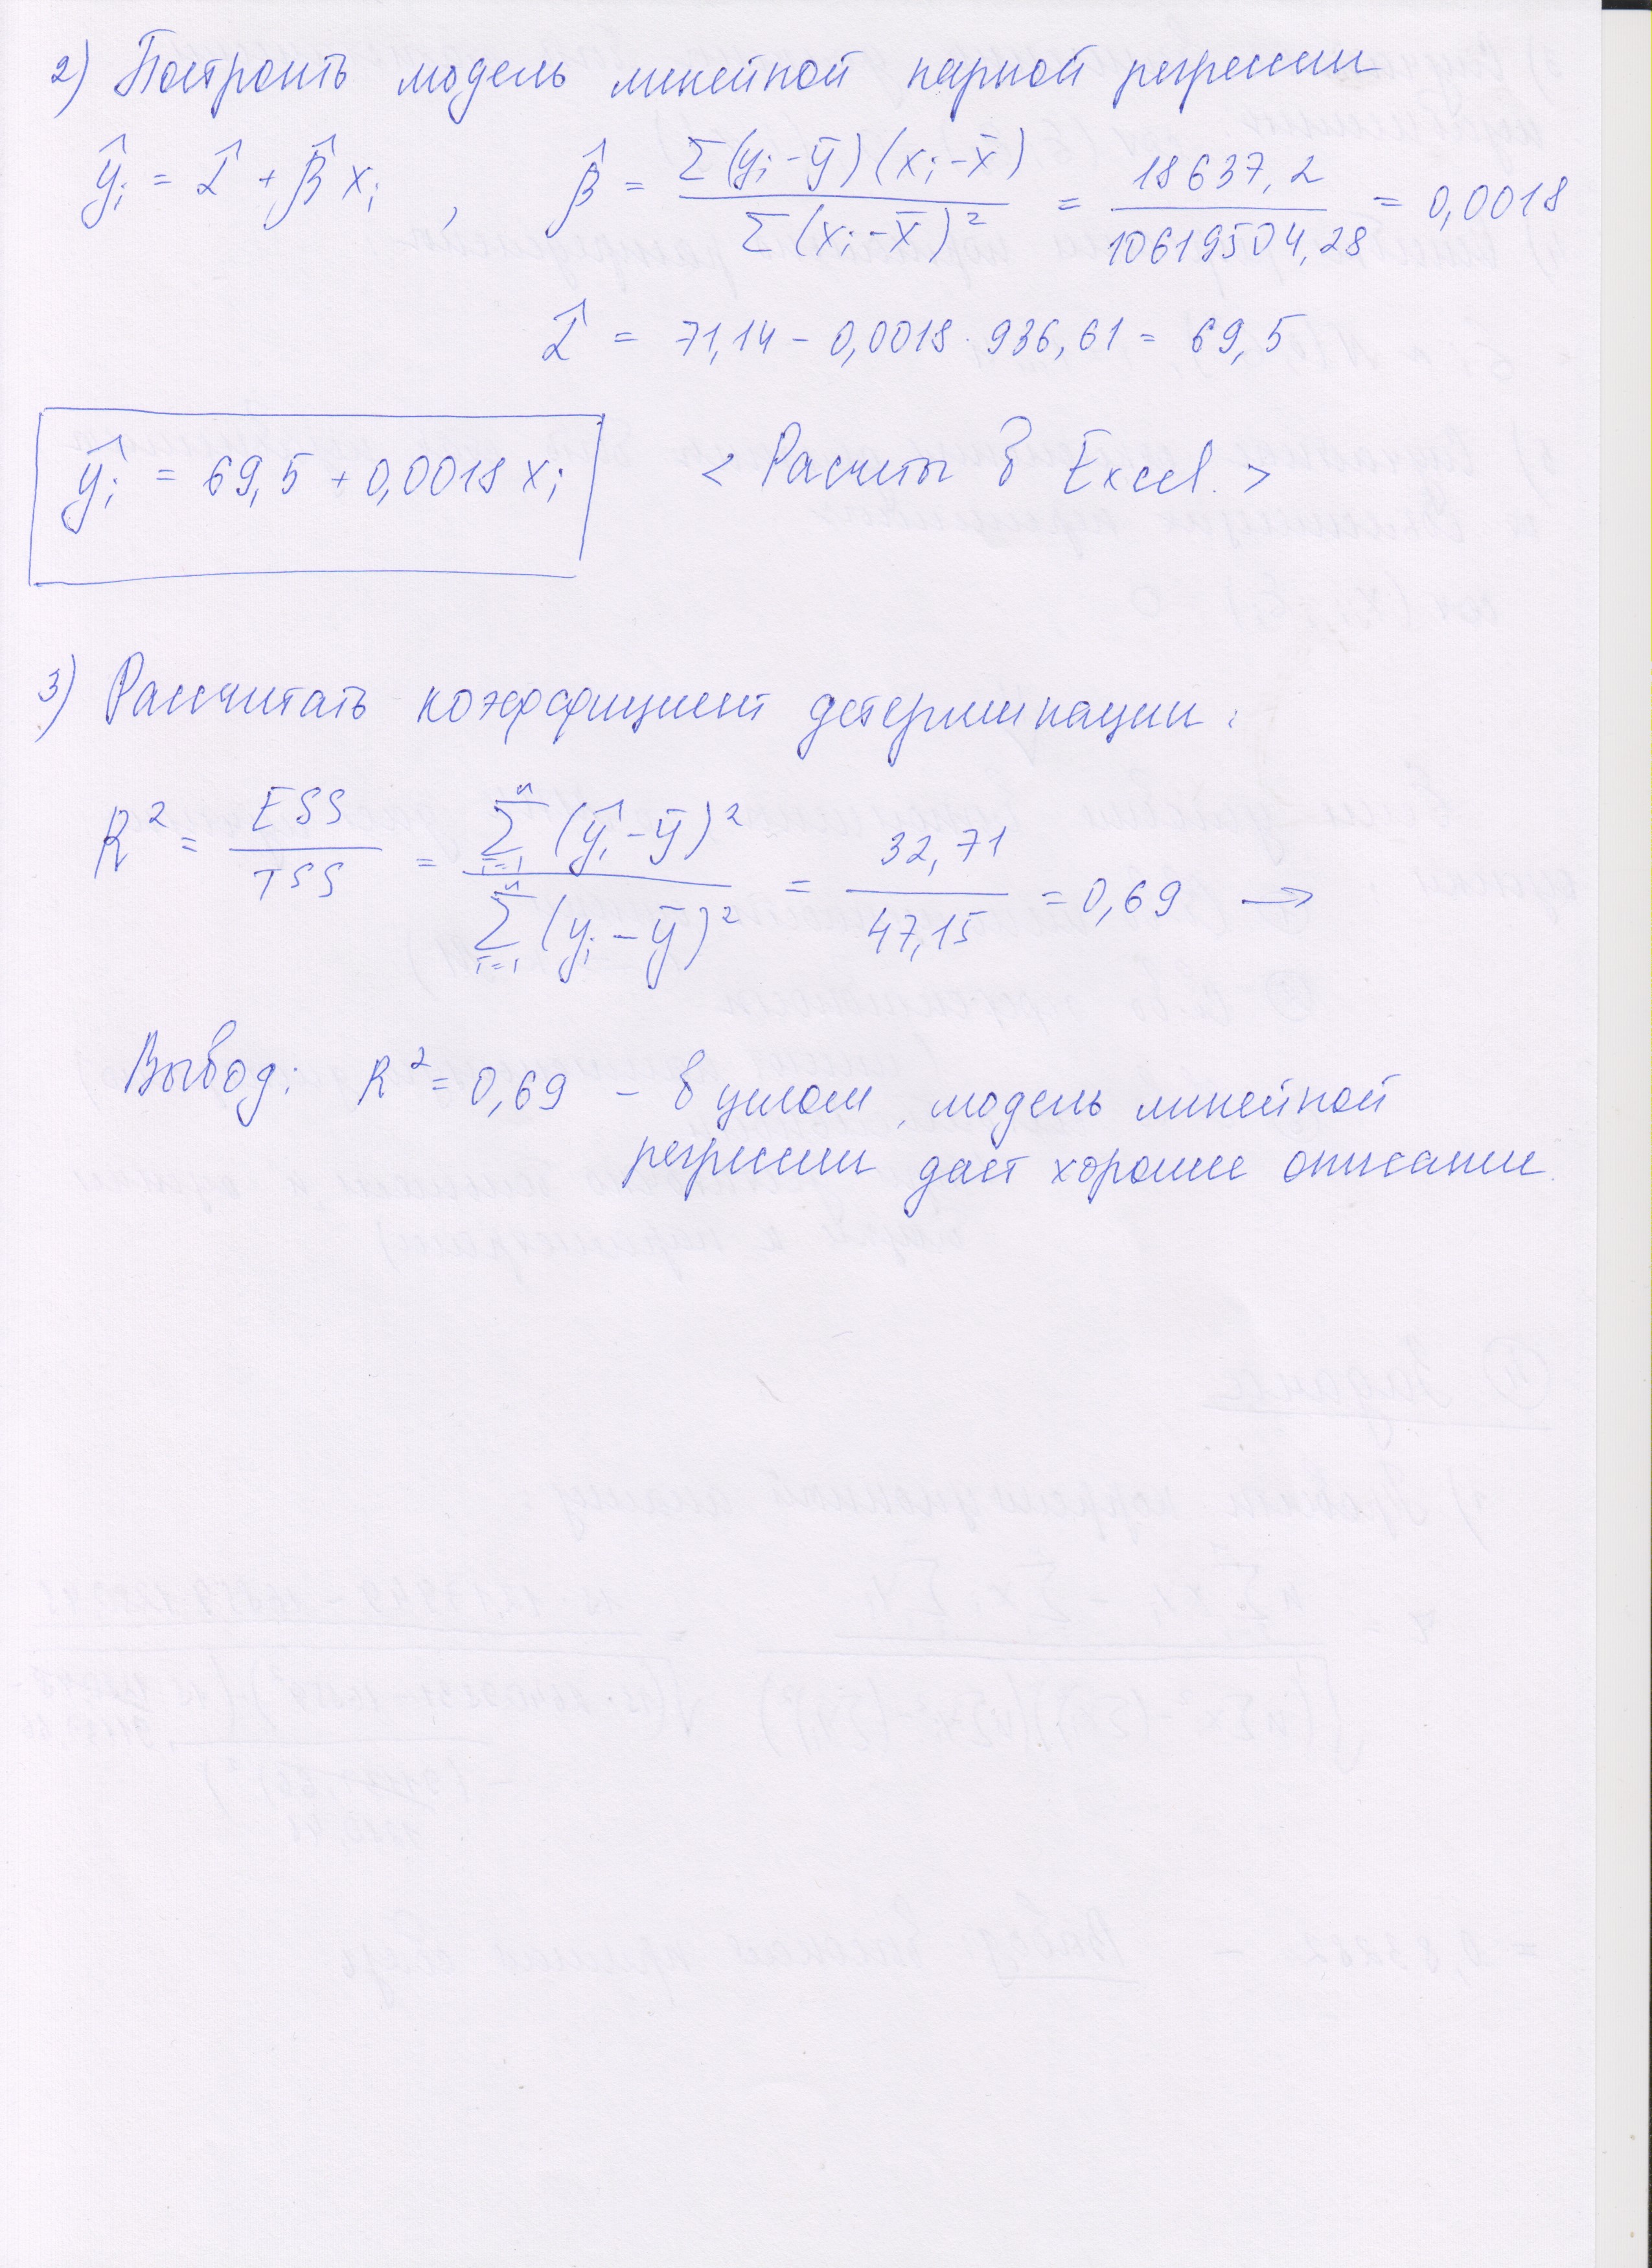 2) Построить модель линейной парной регрессии
ŷᵢ = α̂ + β̂ xᵢ , β̂ = Σ(yᵢ-ȳ)(xᵢ-x̄) / Σ(xᵢ-x̄)² = 18637,2 / 10619504,28 = 0,0018
α̂ = 71,14 - 0,0018 · 936,61 = 69,5
ŷᵢ = 69,5 + 0,0018 xᵢ < Расчеты в Excel. >
3) Рассчитать коэффициент детерминации:
R² = ESS / TSS = Σⁿᵢ₌₁ (ŷᵢ-ȳ)² / Σⁿᵢ₌₁ (yᵢ-ȳ)² = 32,71 / 47,15 = 0,69 →
Вывод: R² = 0,69 - в целом, модель линейной
регрессии дает хорошее описание.